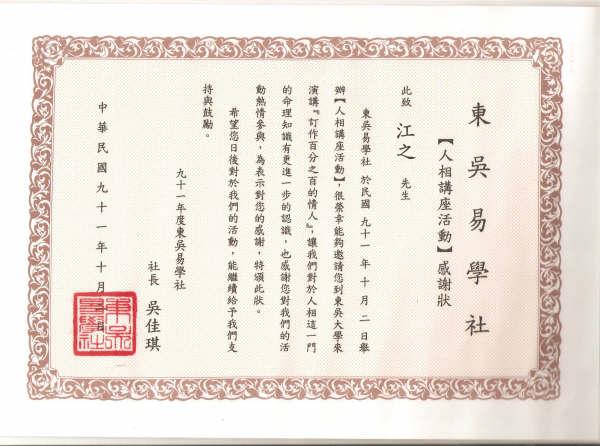 東吳易學社
【人相講座活動】感謝狀
此致 江之 先生
東吳易學社 於民國 九十一 年 十 月 二 日舉
辦【人相講座活動】，很榮幸能夠邀請您到東吳大學來
演講『訂作百分之百的情人』，讓我們對於人相這一門
的命理知識有更進一步的認識，也感謝您對我們的活
動熱情參與，為表示對您的感謝，特頒此狀。
希望您日後對於我們的活動，能繼續給予我們支
持與鼓勵。
九十一年度東吳易學社
社長 吳佳琪
中華民國九十一年十月 日
東吳易學社